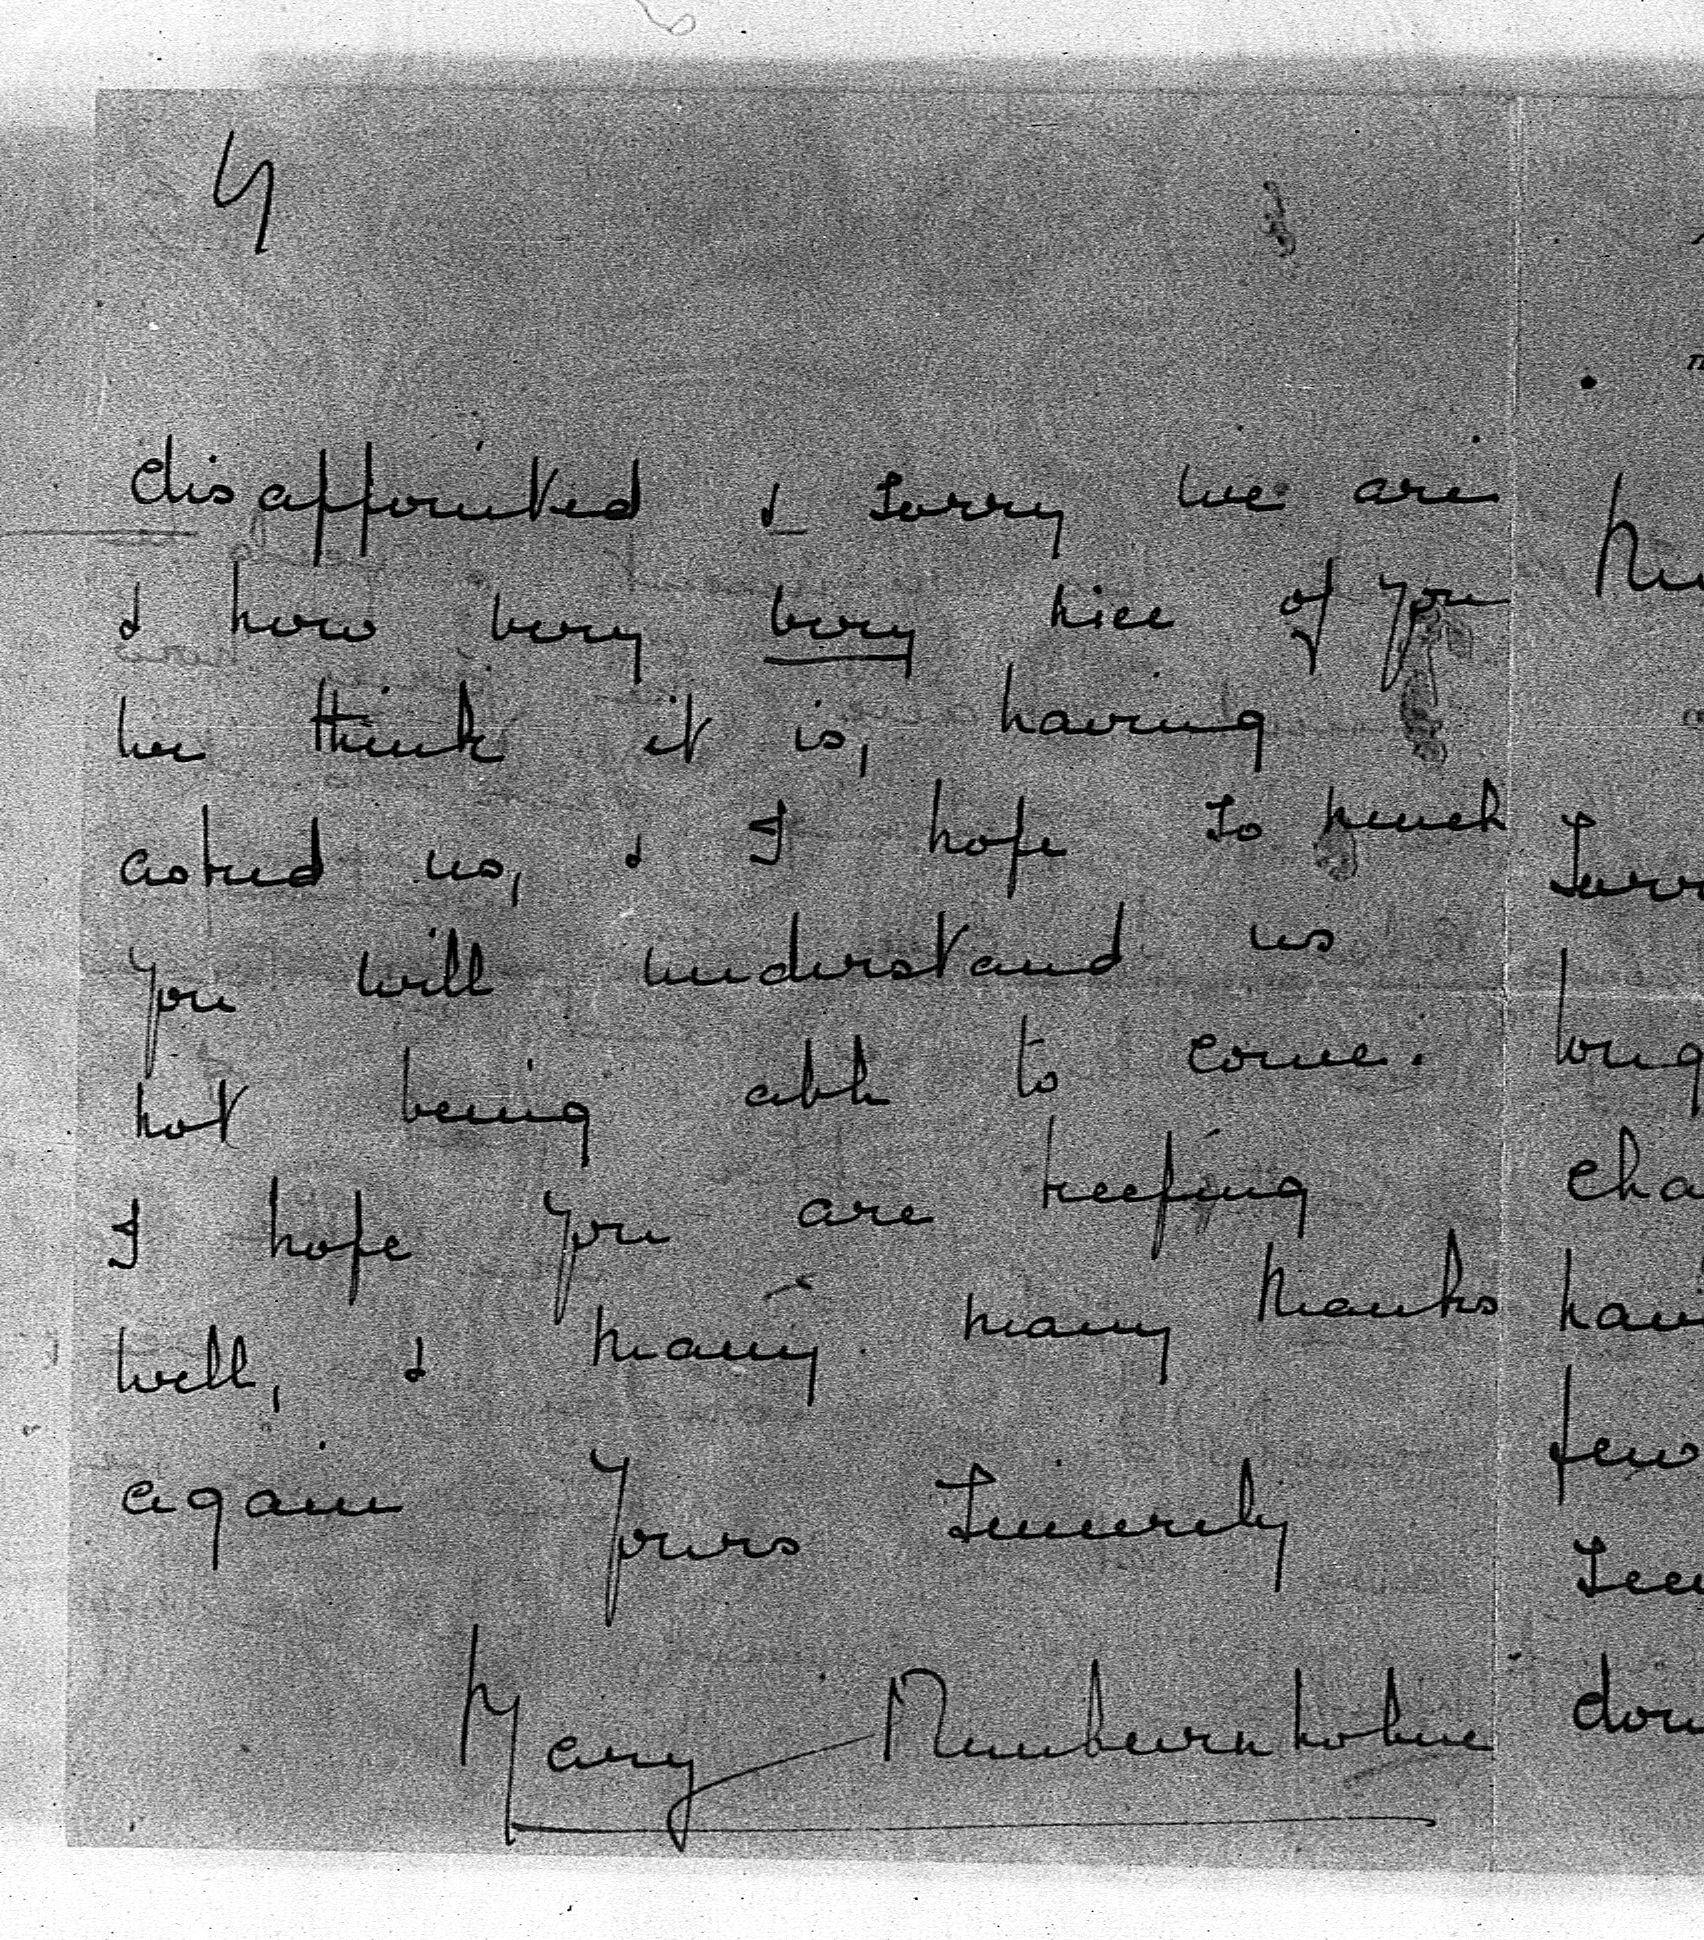 4
disappointed & sorry we are
& how very very nice of you
we think it is, having
asked us, & I hope so much
you will understand us
not being able to come.
I hope you are keeping
well, & many many thanks
again Yours Sincerely
Mary
few